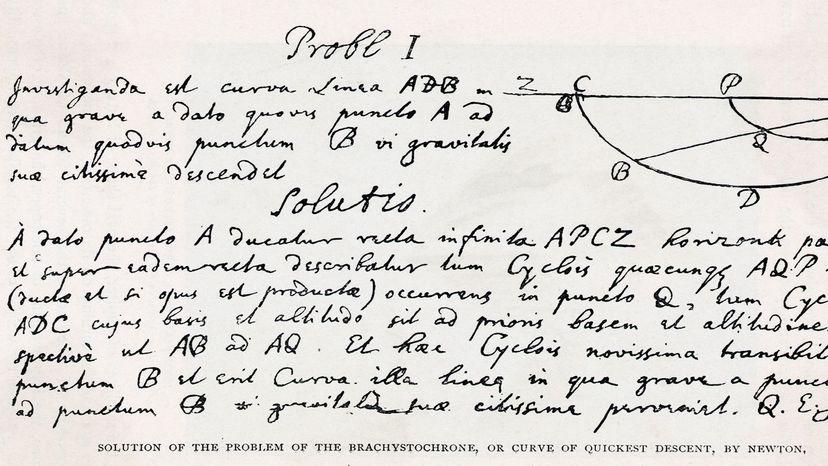 Probl I
Investiganda est curva Linea ADB in
qua grave a dato quovis puncto A ad
datum quodvis punctum B vi gravitatis
suæ citissimè descendet
Z C P
B Q
D
Solutio.
À dato puncto A ducatur recta infinita APCZ horizonti pa
et super eadem recta describatur tum Cyclois quæcunqꝫ AQP
(ductæ et si opus est productæ) occurrens in puncto Q, tum Cyc
ADC cujus basis et altitudo sit ad prioris basem et altitudine
spectivè ut AB ad AQ. Et hæc Cyclois novissima transibit
punctum B et erit Curva illa linea in qua grave a punc
ad punctum B gravitatis suæ citissime perveniet. Q. E.
SOLUTION OF THE PROBLEM OF THE BRACHYSTOCHRONE, OR CURVE OF QUICKEST DESCENT, BY NEWTON,